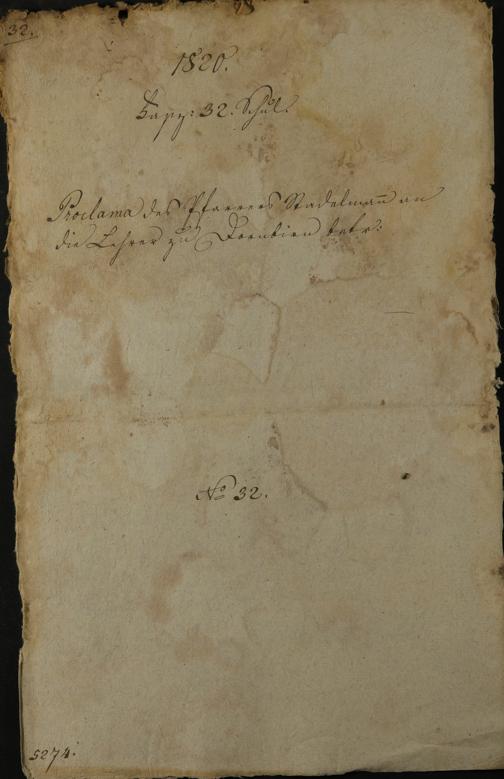 32.
1820.
Fasz: 32. Schul.
Proclama des Pfarrers Stadelman̄ an
die Lehrer zu Dornbirn betr:
No 32.
5274.